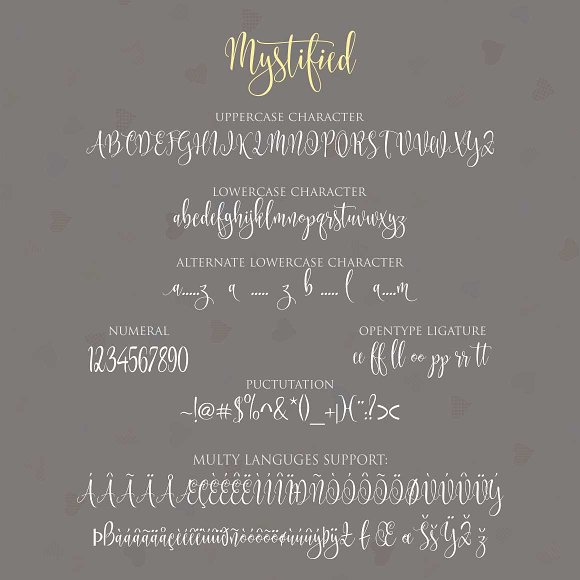 Mystified
UPPERCASE CHARACTER
ABCDEFGHIJKLMNOPQRSTUVWXYZ
LOWERCASE CHARACTER
abcdefghijklmnopqrstuvwxyz
ALTERNATE LOWERCASE CHARACTER
a.....z a ..... z b ..... l a....m
NUMERAL
1234567890
OPENTYPE LIGATURE
ee ff ll oo pp rr tt
PUCTUTATION
~!@#$%^&*()_+|}{":?><
MULTY LANGUGES SUPPORT: